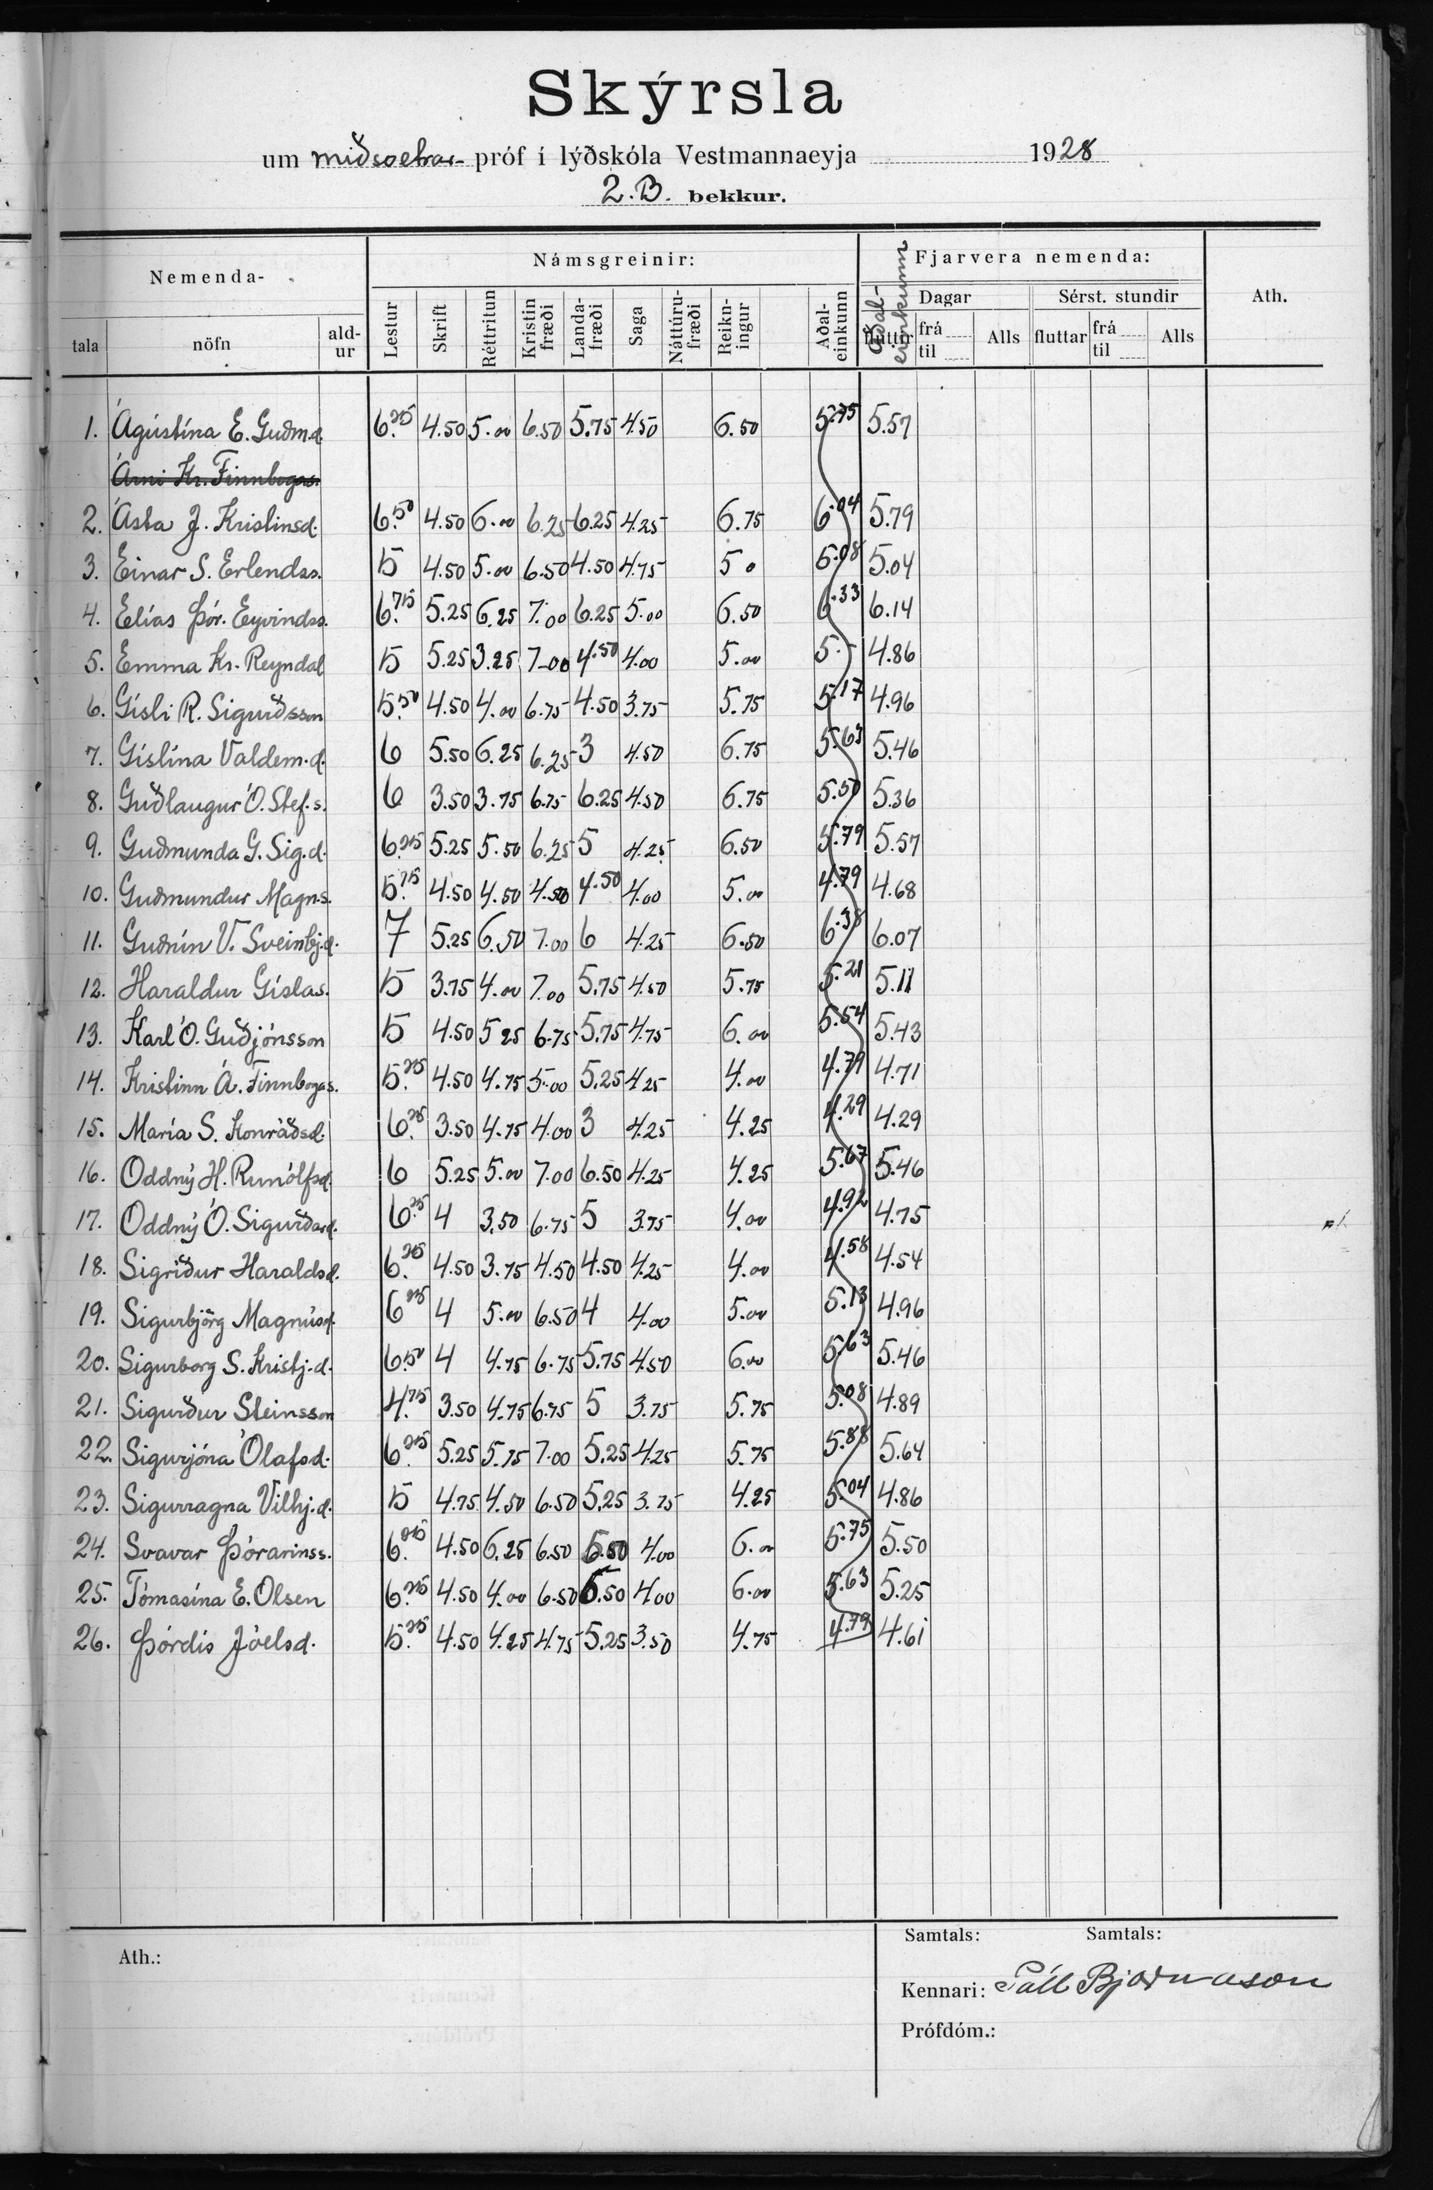 Skýrsla
um miðsvetrar- próf í lýðskóla Vestmannaeyja 1928
2. B. bekkur.
Nemenda- Námsgreinir: Aðal-einkunn Fjarvera nemenda: Ath.
Dagar Sérst. stundir
tala nöfn ald-ur Lestur Skrift Réttritun Kristin fræði Landa-fræði Saga Náttúru-fræði Reikn-ingur Aðal-einkunn fluttir frá til Alls fluttar frá til Alls
1. Ágústína E. Guðm.d. 6.25 4.50 5.00 6.50 5.75 4.50 6.50 5.75 5.57
Árni Kr. Finnbogas.
2. Ásta J. Kristinsd. 6.50 4.50 6.00 6.25 6.25 4.25 6.75 6.04 5.79
3. Einar S. Erlendss. 5 4.50 5.00 6.50 4.50 4.75 5 0 5.08 5.04
4. Elías Þór. Eyvindss. 6.75 5.25 6.25 7.00 6.25 5.00 6.50 6.33 6.14
5. Emma Kr. Reyndal 5 5.25 3.25 7.00 4.50 4.00 5.00 5.- 4.86
6. Gísli R. Sigurðsson 5.50 4.50 4.00 6.75 4.50 3.75 5.75 5.17 4.96
7. Gíslína Valdem.d. 6 5.50 6.25 6.25 3 4.50 6.75 5.63 5.46
8. Guðlaugur Ó. Stef.s. 6 3.50 3.75 6.75 6.25 4.50 6.75 5.50 5.36
9. Guðmunda G. Sig.d. 6.25 5.25 5.50 6.25 5 4.25 6.50 5.79 5.57
10. Guðmundur Magn.s. 5.75 4.50 4.50 4.50 4.50 4.00 5.00 4.79 4.68
11. Guðrún V. Sveinbj.d. 7 5.25 6.50 7.00 6 4.25 6.50 6.38 6.07
12. Haraldur Gíslas. 5 3.75 4.00 7.00 5.75 4.50 5.75 5.21 5.11
13. Karl Ó. Guðjónsson 5 4.50 5 25 6.75 5.75 4.75 6.00 5.54 5.43
14. Kristinn Á. Finnbogas. 5.25 4.50 4.75 5.00 5.25 4 25 4.00 4.79 4.71
15. María S. Konráðsd. 6.25 3.50 4.75 4.00 3 4.25 4.25 4.29 4.29
16. Oddný H. Runólfsd. 6 5.25 5.00 7.00 6.50 4.25 4.25 5.67 5.46
17. Oddný Ó. Sigurðard. 6.25 4 3.50 6.75 5 3.75 4.00 4.92 4.75
18. Sigríður Haraldsd. 6.25 4.50 3.75 4.50 4.50 4.25 4.00 4.58 4.54
19. Sigurbjörg Magnúsd. 6.25 4 5.00 6.50 4 4.00 5.00 5.13 4.96
20. Sigurborg S. Kristj.d. 6.50 4 4.75 6.75 5.75 4.50 6.00 5.63 5.46
21. Sigurður Steinsson 4.75 3.50 4.75 6.75 5 3.75 5.75 5.08 4.89
22. Sigurjóna Ólafsd. 6.25 5.25 5.75 7.00 5.25 4.25 5.75 5.88 5.64
23. Sigurragna Vilhj.d. 5 4.75 4.50 6.50 5.25 3.75 4.25 5.04 4.86
24. Svavar Þórarinss. 6.25 4.50 6.25 6.50 5.50 4.00 6.00 5.75 5.50
25. Tómasína E. Olsen 6.25 4.50 4.00 6.50 5.50 4.00 6.00 5.63 5.25
26. Þórdís Jóelsd. 5.25 4.50 4.25 4.75 5.25 3.50 4.75 4.79 4.61
Samtals: Samtals:
Ath.:
Kennari: Páll Bjarnason
Prófdóm.: